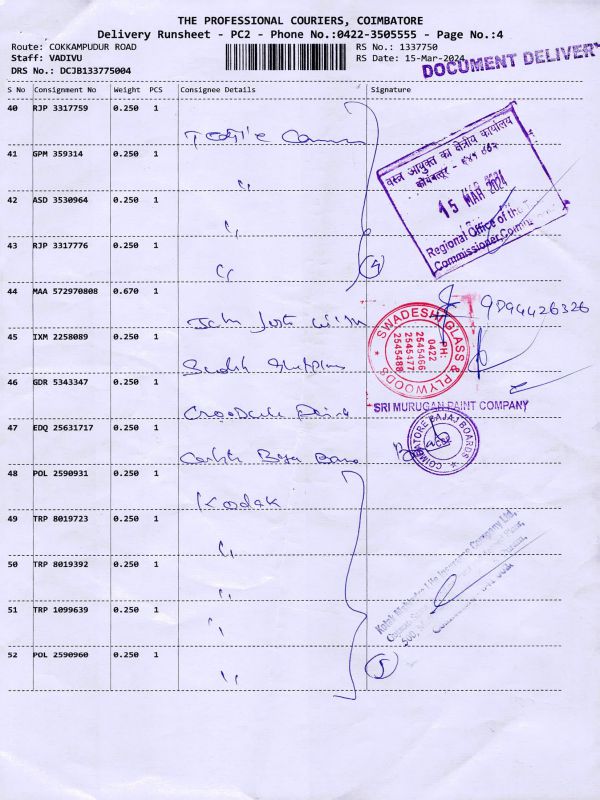 THE PROFESSIONAL COURIERS, COIMBATORE
Delivery Runsheet - PC2 - Phone No.:0422-3505555 - Page No.:4
Route: COKKAMPUDUR ROAD
Staff: VADIVU
DRS No.: DCJB133775004
RS No.: 1337750
RS Date: 15-Mar-2024
DOCUMENT DELIVERY
S No Consignment No Weight PCS Consignee Details Signature
40 RJP 3317759 0.250 1
41 GPM 359314 0.250 1 "
42 ASD 3530964 0.250 1 "
43 RJP 3317776 0.250 1 "
4
वस्त्र आयुक्त का क्षेत्रीय कार्यालय
15 MAR 2024
Regional Office of the
Commissioner, Coimbatore
44 MAA 572970808 0.670 1
9094426326
45 IXM 2258089 0.250 1
SWADESH GLASS & PLYWOODS
PH:
0422
2545466
2545477
2545488
46 GDR 5343347 0.250 1
SRI MURUGAN PAINT COMPANY
47 EDQ 25631717 0.250 1
COIMBATORE BAJAJ BOARDS
48 POL 2590931 0.250 1 Kodak
49 TRP 8019723 0.250 1 "
50 TRP 8019392 0.250 1 "
51 TRP 1099639 0.250 1 "
52 POL 2590960 0.250 1 "
5
Kotak Mahindra Life Insurance Company Ltd,